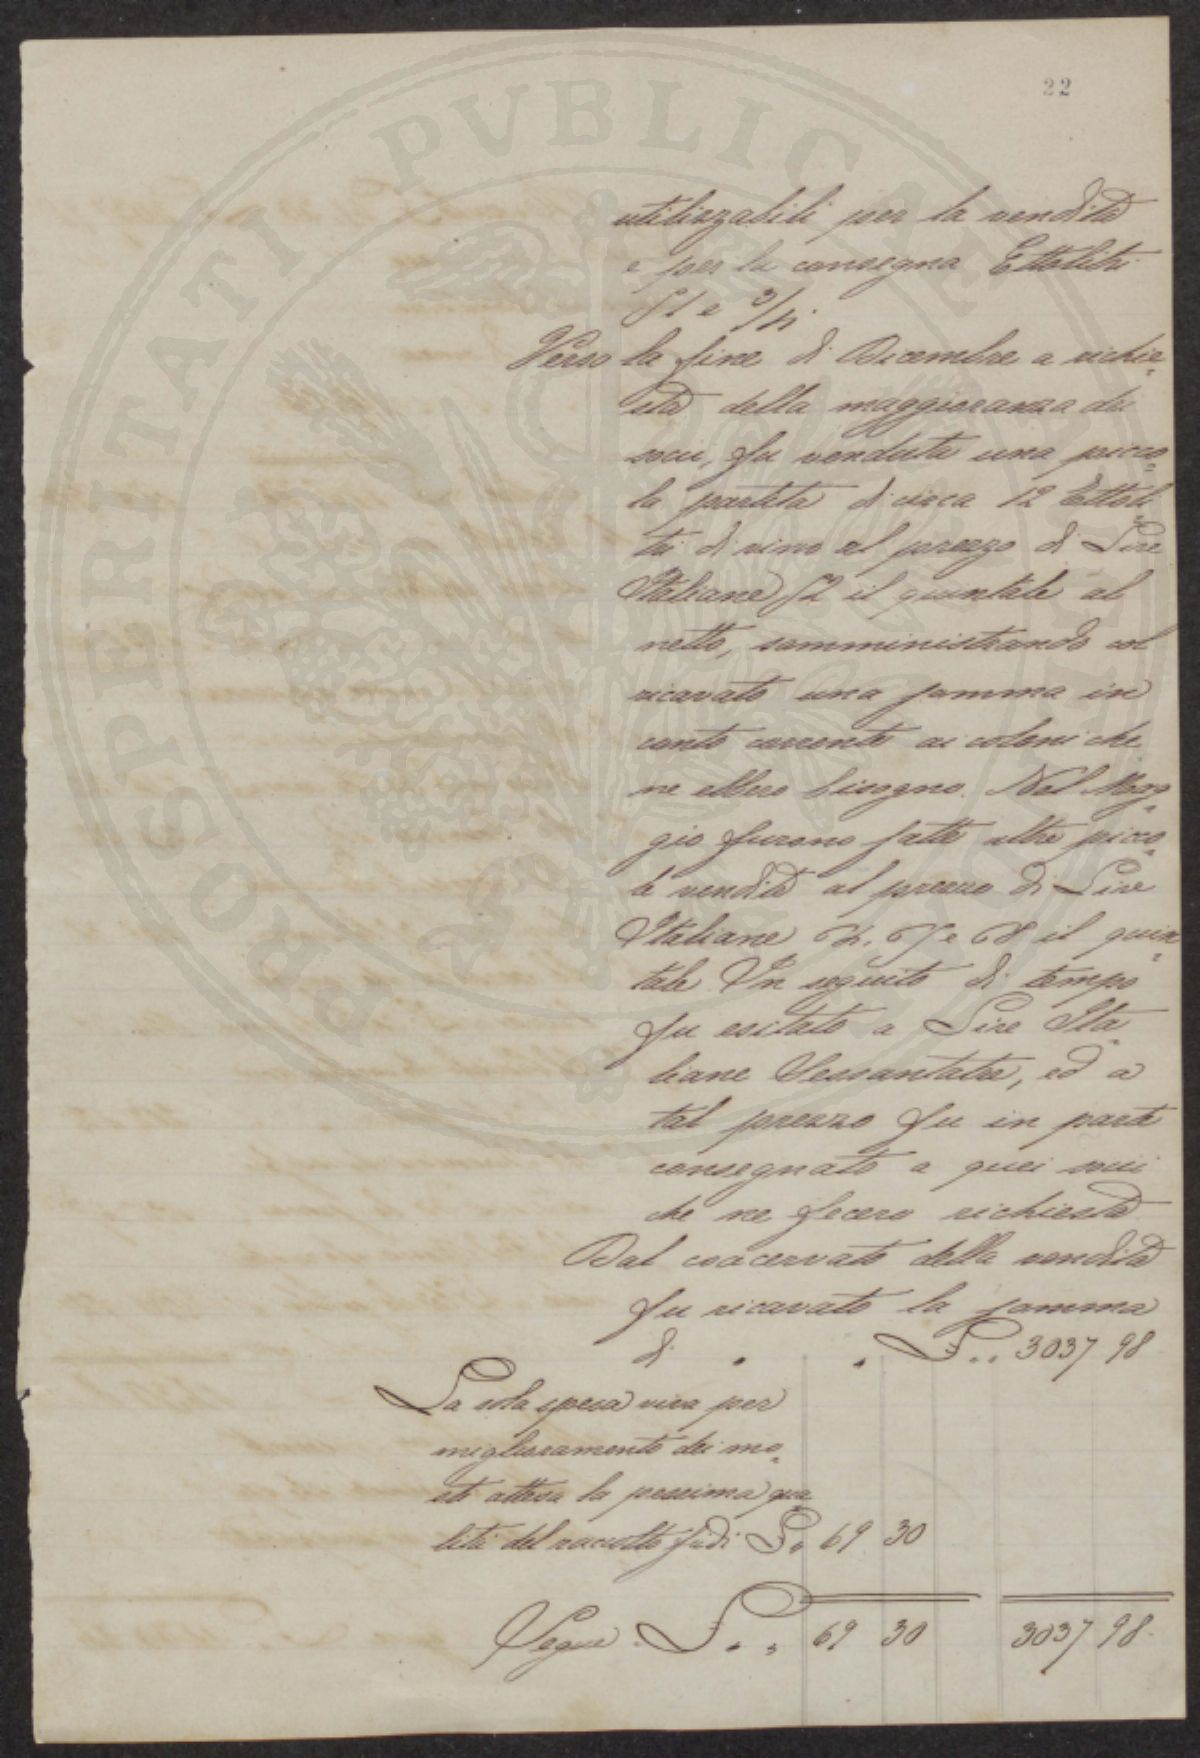 22
utilizzabili per la vendita
e per la consegna Ettolitri
51 e 3/4.
Verso la fine di Dicembre a richie=
sta della maggioranza dei
socii, fu venduta una picco=
la partita di circa 12 Ettoli=
tri di vino al prezzo di Lire
Italiane 52 il quintale al
netto, somministrando col
ricavato una somma in
conto corrente ai coloni che
ne ebbero bisogno. Nel Mag=
gio furono fatte altre picco=
le vendite al prezzo di Lire
Italiane 64, 65 e 68 il quin=
tale In seguito di tempo
fu esitato a Lire Ita=
liane Sessantatre, ed a
tal prezzo fu in parte
consegnato a quei socii
che ne fecero richiesta
Dal coacervato della vendita
fu ricavato la somma
di " " L.. 3037 98
La sola spesa viva per
miglioramento dei mo=
sti attesa la pessima qua=
lità del raccolto fu di L. 69 30
Segue. L. . 69 30 3037 98.
PROSPERITATI PVBLICAE